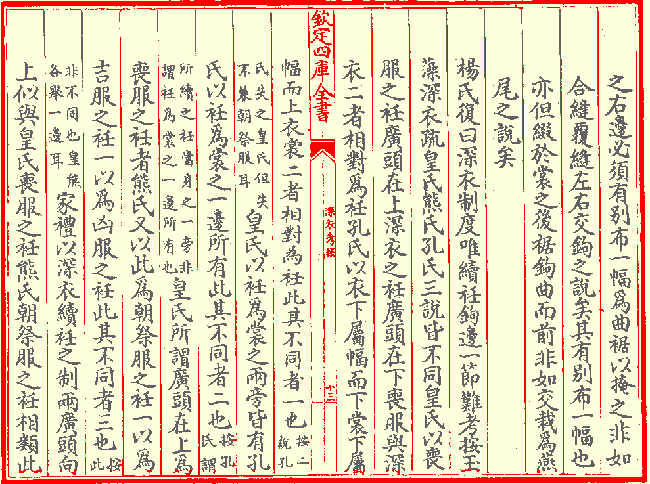 之右邊必須有别布一幅為曲裾以掩之非如
合縫覆縫左右交鉤之說矣其有别布一幅也
亦但綴於裳之後裾鉤曲而前非如交裁為燕
尾之說矣
楊氏復曰深衣制度唯續衽鉤邊一節難考按玉
藻深衣疏皇氏熊氏孔氏三說皆不同皇氏以喪
服之衽廣頭在上深衣之衽廣頭在下喪服與深
衣二者相對為衽孔氏以衣下屬幅而下裳下屬
欽定四庫全書
深衣考誤
十三
幅而上衣裳二者相對為衽此其不同者一也按二說孔
氏失之皇氏但失不兼朝祭服耳皇氏以衽為裳之兩旁皆有孔
氏以衽為裳之一邊所有此其不同者二也按孔氏謂
所續之衽當身之一旁非謂衽為裳之一邊所有也皇氏所謂廣頭在上為
喪服之衽者熊氏又以此為朝祭服之衽一以為
吉服之衽一以為凶服之衽此其不同者三也按此
非不同也皇熊各舉一邊耳家禮以深衣續衽之制兩廣頭向
上似與皇氏喪服之衽熊氏朝祭服之衽相類此